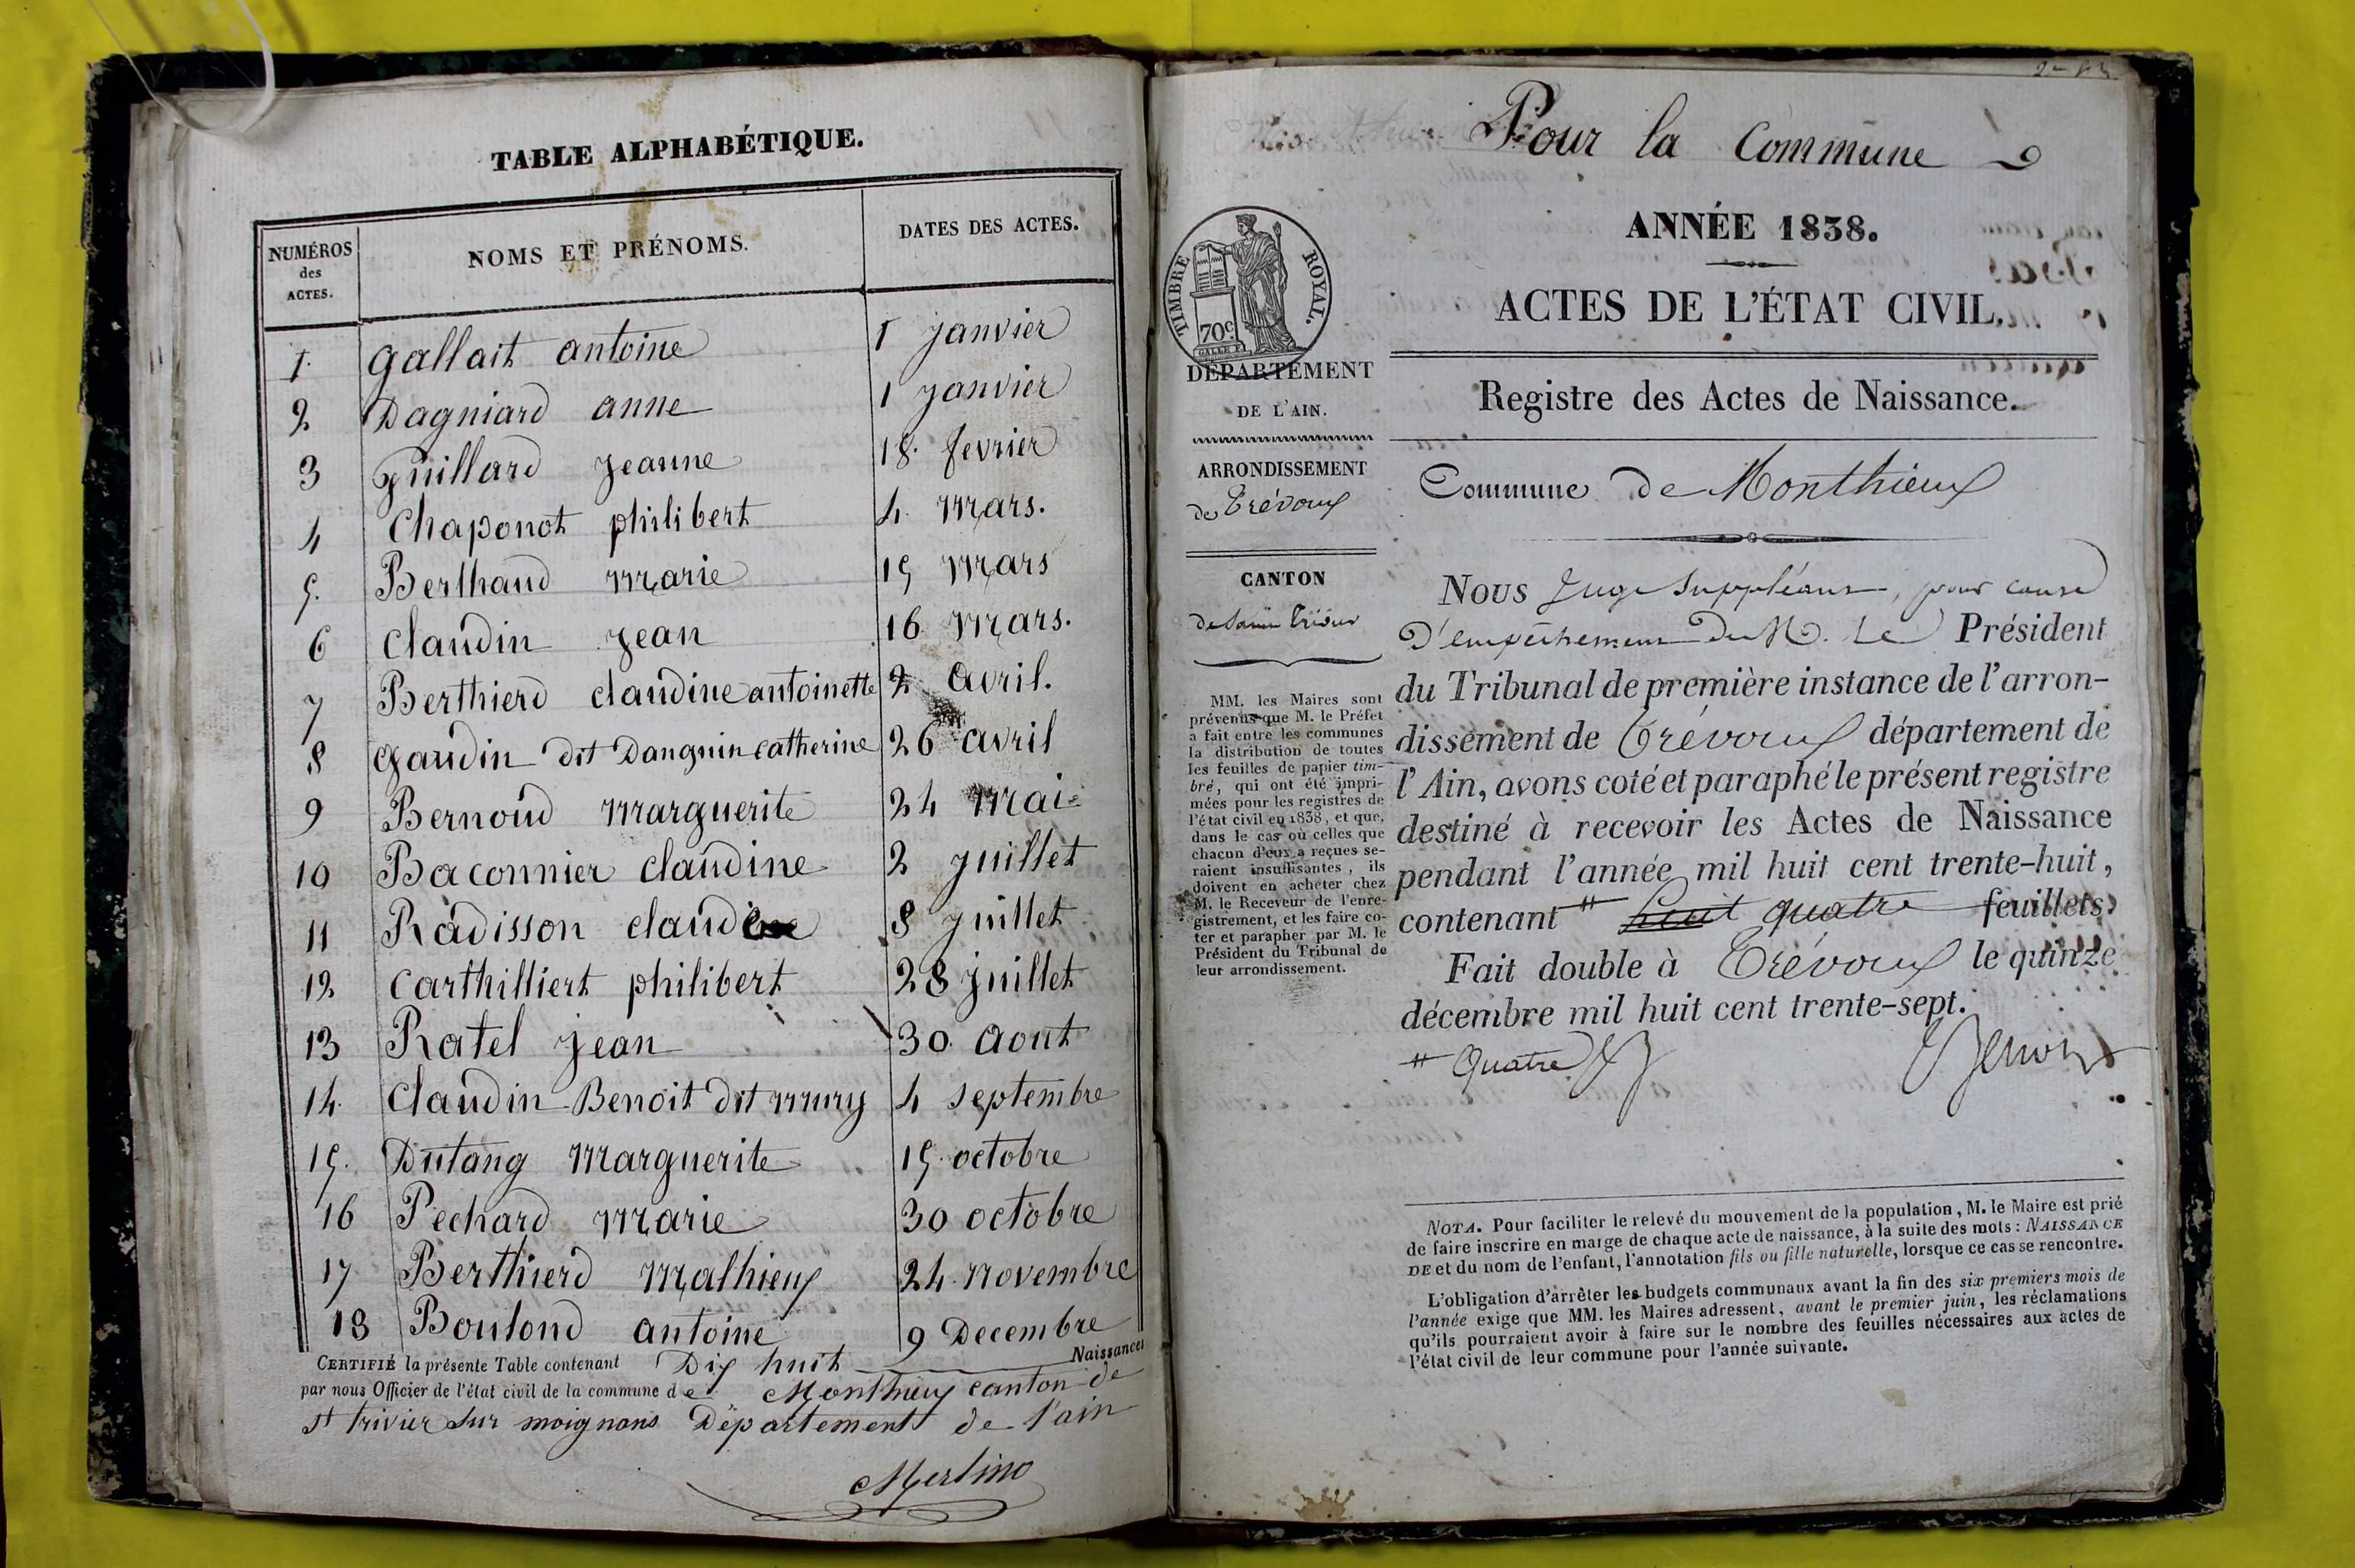 TABLE ALPHABÉTIQUE.
NUMÉROS des ACTES.
NOMS ET PRÉNOMS.
DATES DES ACTES.
1. Gallait antoine 1 janvier
2 Dagniard anne 1 janvier
3 Juillard jeanne 18. fevrier
4 Chaponot philibert 4. mars.
5. Berthaud marie 15 mars
6 Claudin jean 16 mars.
7 Berthierd claudine antoinette 2 avril.
8 Gaudin dit Danguin catherine 26 avril
9 Bernoud marguerite 24 mai
10 Baconnier claudine 2 juillet
11 Radisson 8 juillet
12 Carthilliert philibert 28 juillet
13 Ratel jean 30 aout
14. Claudin Benoit dit mury 4 septembre
15. Dutang marguerite 15. octobre
16 Pechard marie 30 octobre
17 Berthierd mathieux 24. novembre
18 Boulond antoine 9 Decembre
CERTIFIÉ la présente Table contenant Dix huit Naissances
par nous Officier de l'état civil de la commune de Monthieux canton de
St trivier sur moignans Département de l'ain
Merlino
Pour la Commune
TIMBRE ROYAL.
70c
ANNÉE 1838.
ACTES DE L'ÉTAT CIVIL.
DÉPARTEMENT
DE L'AIN.
ARRONDISSEMENT
de Trévoux
CANTON
de Saint Trivier
MM. les Maires sont
prévenus que M. le Préfet
a fait entre les communes
la distribution de toutes
les feuilles de papier tim-
bré, qui ont été impri-
mées pour les registres de
l'état civil en 1838, et que,
dans le cas où celles que
chacun d'eux a reçues se-
raient insuffisantes, ils
doivent en acheter chez
M. le Receveur de l'enre-
gistrement, et les faire co-
ter et parapher par M. le
Président du Tribunal de
leur arrondissement.
Registre des Actes de Naissance.
Commune de Monthieux
Nous Juge Suppléant, pour cause
D'empêchement de M. Le Président
du Tribunal de première instance de l'arron-
dissement de Trévoux département de
l'Ain, avons coté et paraphé le présent registre
destiné à recevoir les Actes de Naissance
pendant l'année mil huit cent trente-huit,
contenant huit quatre feuillets.
Fait double à Trévoux le quinze
décembre mil huit cent trente-sept.
Quatre
NOTA. Pour faciliter le relevé du mouvement de la population, M. le Maire est prié
de faire inscrire en marge de chaque acte de naissance, à la suite des mots : NAISSANCE
DE et du nom de l'enfant, l'annotation fils ou fille naturelle, lorsque ce cas se rencontre.
L'obligation d'arrêter les budgets communaux avant la fin des six premiers mois de
l'année exige que MM. les Maires adressent, avant le premier juin, les réclamations
qu'ils pourraient avoir à faire sur le nombre des feuilles nécessaires aux actes de
l'état civil de leur commune pour l'année suivante.